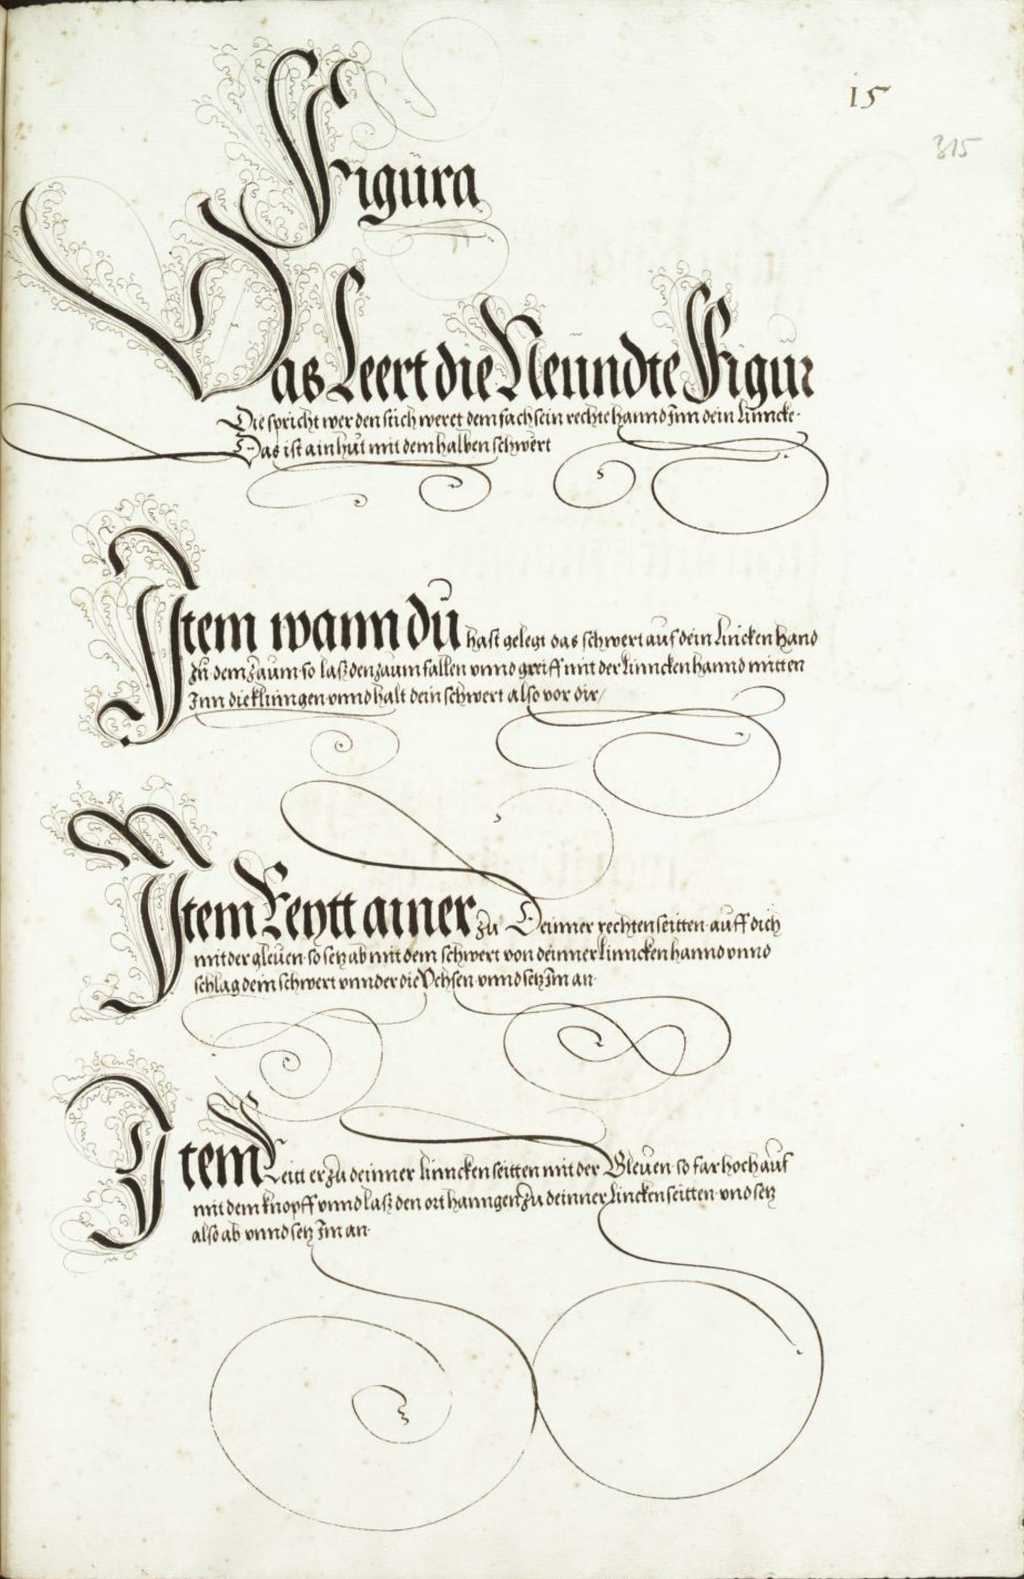 15
315
Figura
Das Leert die Neundte Figur
Die spricht wer den stich weret dem fach sein rechte hannd Inn dein Linncke.
Das ist ain hut mit dem halben schwert
Item wann du hast gelegt das schwert auf dein Lincken hand
zu dem zaum so lasz den zaum fallen vnnd greiff mit der Linncken hannd mitten
Inn die klinngen vnnd halt dein schwert also vor dir/
Item Reytt ainer zu Deinner rechten seitten auff dich
mit der gleuen so setz ab mit dem schwert von deinner Linncken hannd vnnd
schlag dein schwert vnnder die Vchsen vnnd setz Im an.
Item Reitt er zu deinner Linncken seitten mit der Gleuen so far hoch auf
mit dem knopff vnnd lasz den ort hanngen zu deinner Lincken seitten vnd setz
also ab vnnd setz Im an.